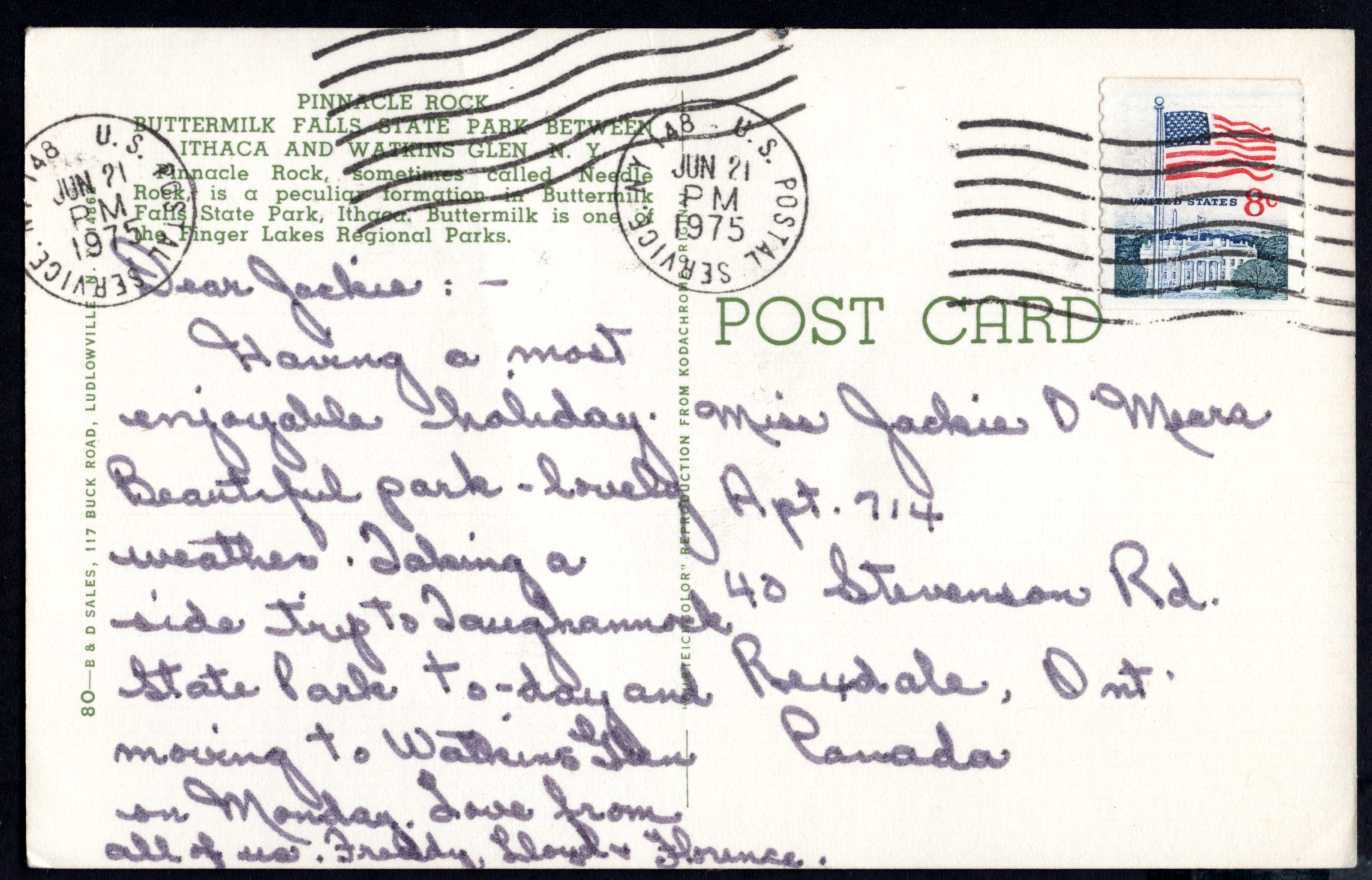 PINNACLE ROCK
BUTTERMILK FALLS STATE PARK BETWEEN
ITHACA AND WATKINS GLEN N. Y.
Pinnacle Rock, sometimes called Needle
Rock, is a peculiar formation in Buttermilk
Falls State Park, Ithaca. Buttermilk is one of
the Finger Lakes Regional Parks.
U.S. POSTAL SERVICE. NY 148
JUN 21
PM
1975
Dear Jackie : -
Having a most
enjoyable holiday.
Beautiful park - lovely
weather. Taking a
side trip to Taughannock
State Park to-day and
moving to Watkins Glen
on Monday. Love from
all of us. Freddy, Lloyd + Florence.
80—B & D SALES, 117 BUCK ROAD, LUDLOWVILLE, N.
COLOR" REPRODUCTION FROM KODACHROME ORIGINAL
U.S. POSTAL SERVICE. NY 148
JUN 21
PM
1975
UNITED STATES 8c
POST CARD
Miss Jackie O'Meara
Apt. 714
40 Stevenson Rd.
Rexdale, Ont.
Canada